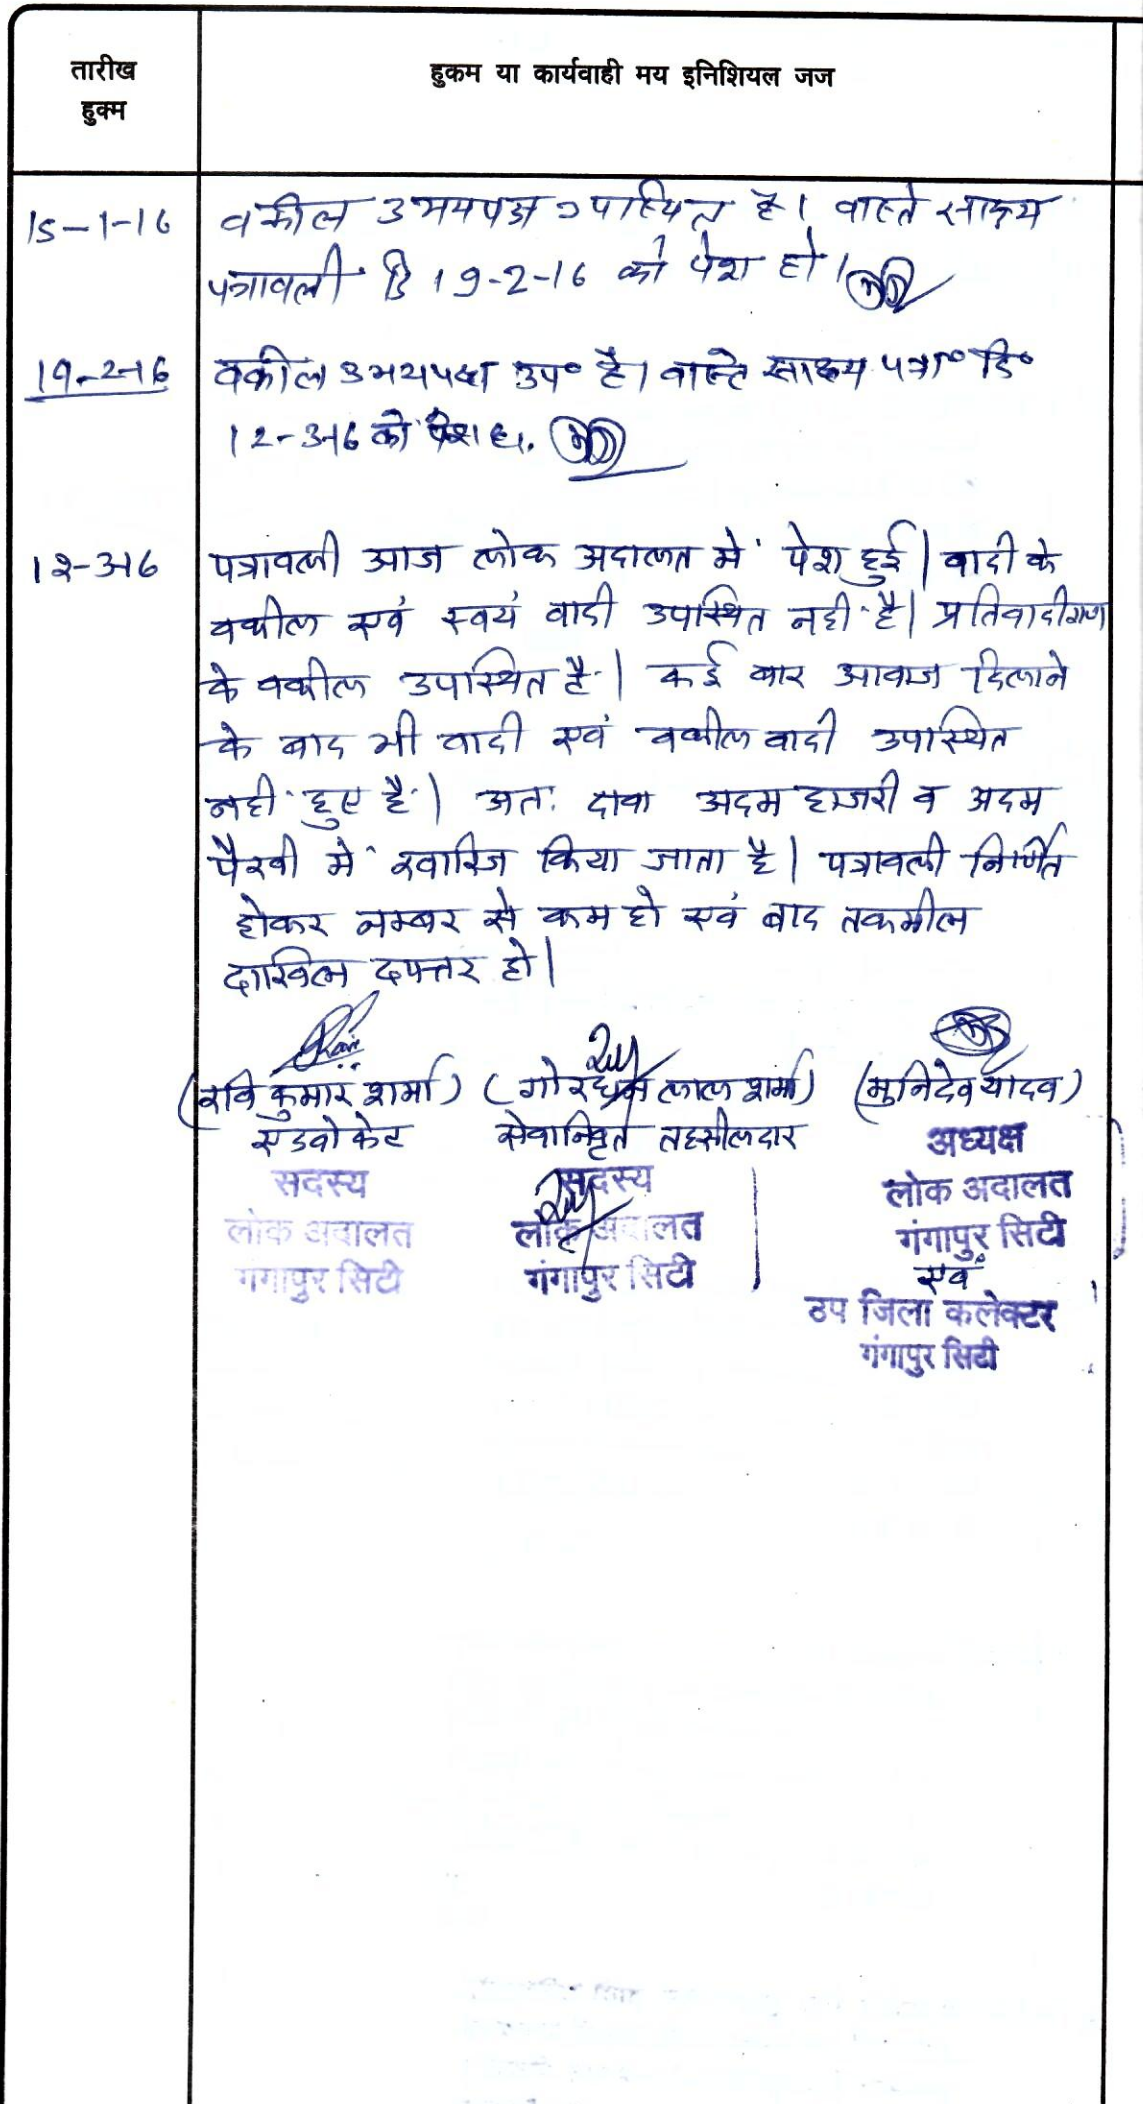 तारीख
हुक्म
हुकम या कार्यवाही मय इनिशियल जज
15-1-16
वकील उभयपक्ष उपस्थित है। वास्ते साक्ष्य
पत्रावली दि 19-2-16 को पेश हो।
19-2-16
वकील उभयपक्ष उप॰ है। वास्ते साक्ष्य पत्रा॰ दि॰
12-3-16 को पेश हो.
12-3-16
पत्रावली आज लोक अदालत में पेश हुई। वादी के
वकील एवं स्वयं वादी उपस्थित नहीं है। प्रतिवादीगण
के वकील उपस्थित है। कई बार आवाज दिलाने
के बाद भी वादी एवं वकील वादी उपस्थित
नहीं हुए है। अतः दावा अदम हाजरी व अदम
पैरवी में खारिज किया जाता है। पत्रावली निर्णित
होकर नम्बर से कम हो एवं बाद तकमील
दाखिल दफ्तर हो।
(रवि कुमार शर्मा) (गोरधन लाल शर्मा) (मुनिदेव यादव)
एडवोकेट सेवानिवृत तहसीलदार अध्यक्ष
सदस्य सदस्य लोक अदालत
लोक अदालत लोक अदालत गंगापुर सिटी
गंगापुर सिटी गंगापुर सिटी एवं
उप जिला कलेक्टर
गंगापुर सिटी